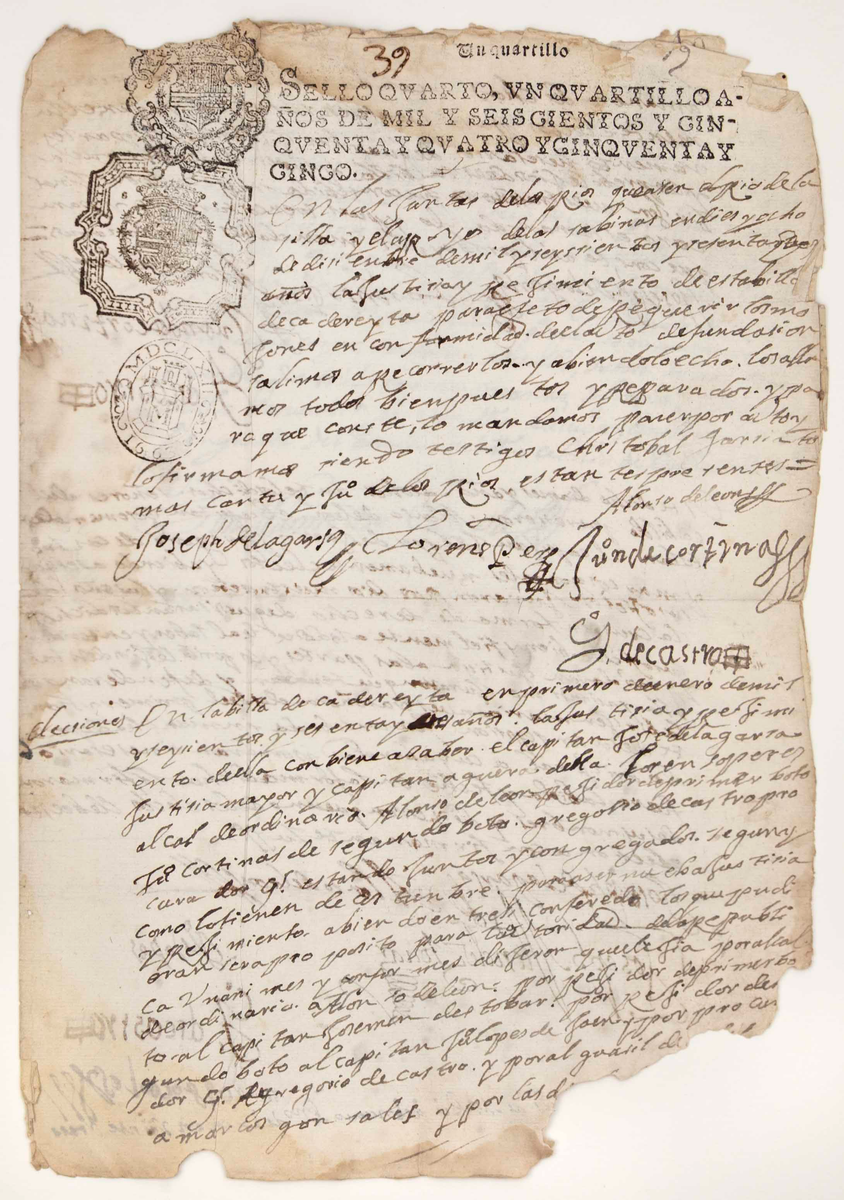 39
Un quartillo
SELLO QVARTO, VN QVARTILLO A-
ÑOS DE MIL Y SEISCIENTOS Y CIN-
QVENTA Y QVATRO Y CINQVENTA Y
CINCO.
En las Juntas de los Rios que asen el rio de la
silla y el arroyo de las sabinas en dies y ocho
de disienbre de mil y seyssientos y sesenta y
años la Justisia y Regimiento de esta billa
de cadereyta para efeto de Requerir los mo
Jones en conformidad del auto de fundasion
salimos a Recorrerlos y abiendolo echo los alla
mos todos bien puestos y Reparados y pa
ra que conste lo mandamos poner por auto y
lo firmamos siendo testigos Christobal
mas cantu y Juº de los Rios estantes presentes =
Alonso de leon
Joseph de la garsa Lorenso Perez Juºn de cortinas
G. de castro
elecsiones
En la billa de cadereyta en primero de enero de mil
y seysientos y sesenta y años. la Justisia y Regimi
ento della conbiene a saber el capitan Jose de la garsa
Justisia mayor y capitan a guerra della Lorenso perez
alcalde ordinario Alonso de leon Regidor de primer boto
Juº Cortinas de segundo boto gregorio de castro pro
curador Gl estando Juntos y congregados segun y
como lo tienen de costunbre para aser nueba Justisia
y Regimiento abiendo entre si conferido los que pudi
eran ser a proposito para la utoridad de la Republi
ca Unanimes y conformes dijeron que elejia por alcal
de ordinario a Alonso de leon por Regidor de primer bo
to al capitan Jose mendes tobar por Regidor de se
gundo boto al capitan Juº lopes de Jaen y por procura
dor Gl a gregorio de castro y por alguasil
a marcos gonsales y por las
MDCLXII